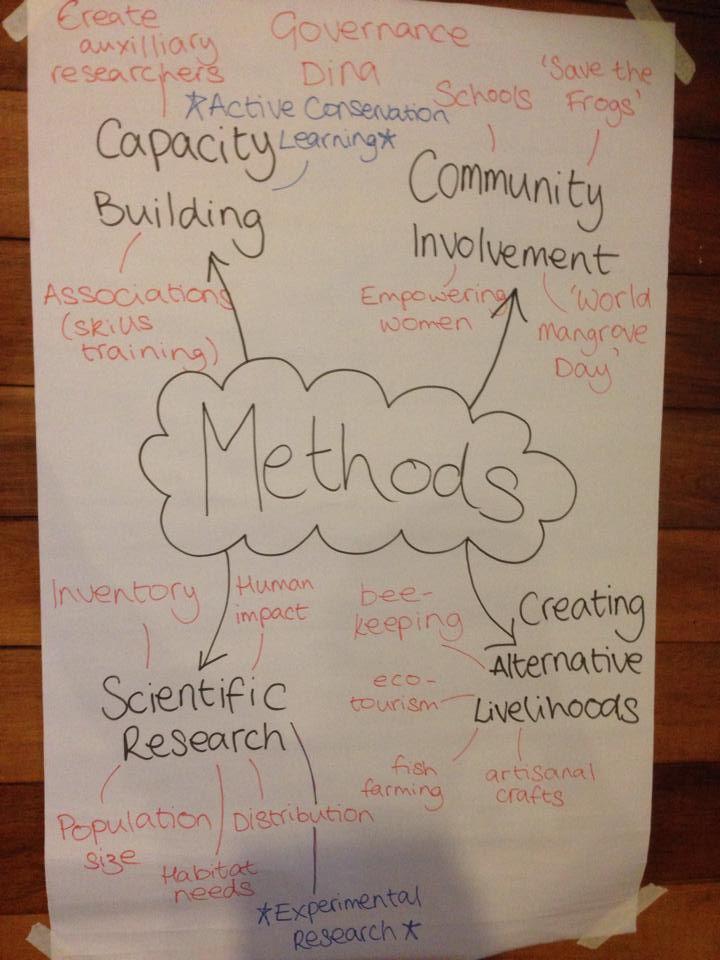 Create
auxilliary
researchers
Governance
Dina
*Active Conservation
Learning*
Capacity
Building
Associations
(skills
training)
Schools
'Save the
Frogs'
Community
Involvement
Empowering
women
'World
mangrove
Day'
Methods
Inventory
Human
impact
Scientific
Research
Population
size
Habitat
needs
Distribution
*Experimental
Research*
bee-
keeping
Creating
Alternative
Livelihoods
eco-
tourism
fish
farming
artisanal
crafts